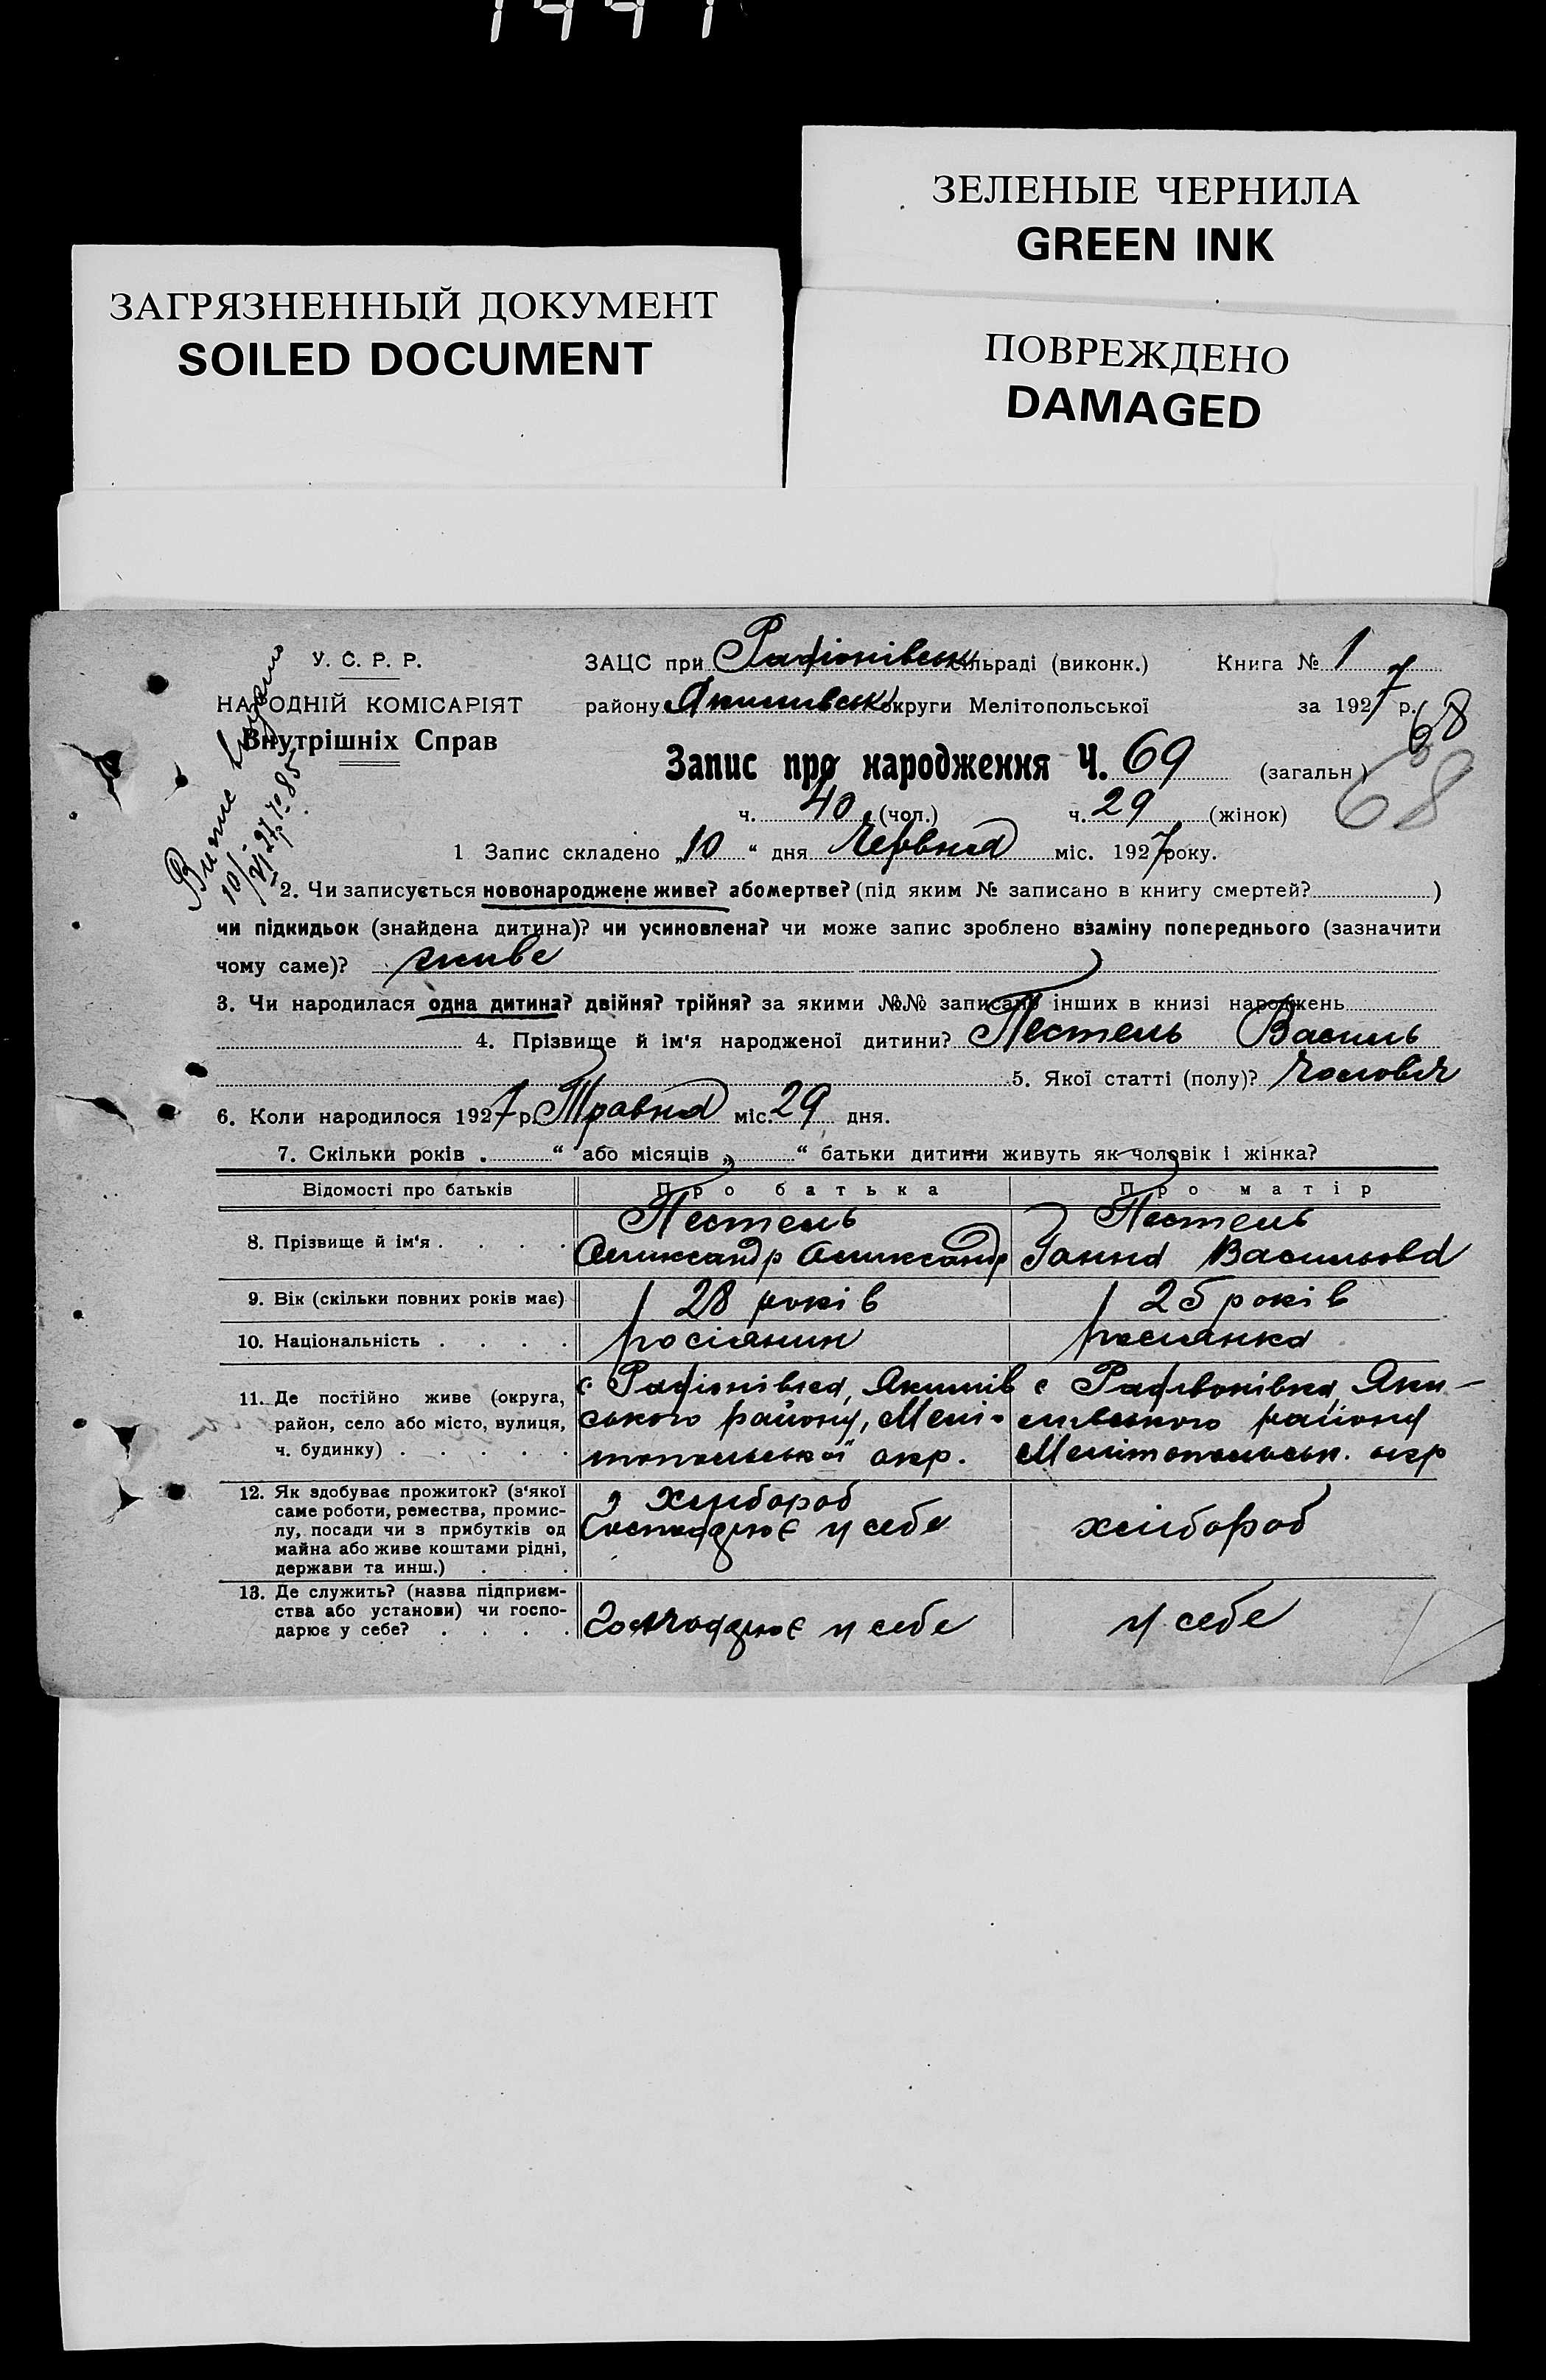 1997
ЗЕЛЕНЫЕ ЧЕРНИЛА
GREEN INK
ЗАГРЯЗНЕННЫЙ ДОКУМЕНТ
SOILED DOCUMENT
ПОВРЕЖДЕНО
DAMAGED
У. С. Р. Р.
НАРОДНІЙ КОМІСАРІЯТ
Внутрішніх Справ
ЗАЦС при Радіонівськ сільраді (виконк.) Книга № 1
району Якимівськ округи Мелітопольської за 1927 р.
68
Запис про народження Ч. 69 (загальн)
68
ч. 40 (чол.) ч. 29 (жінок)
Випис видано
10/VI-27 р. № 85
1 Запис складено „10“ дня Червня міс. 1927 року.
2. Чи записується новонароджене живе? або мертве? (під яким № записано в книгу смертей? )
чи підкидьок (знайдена дитина)? чи усиновлена? чи може запис зроблено взаміну попереднього (зазначити
чому саме)? живе
3. Чи народилася одна дитина? двійня? трійня? за якими №№ записано інших в книзі народжень
4. Прізвище й ім'я народженої дитини? Пестель Василь
5. Якої статті (полу)? чоловіч
6. Коли народилося 1927 р. Травня міс. 29 дня.
7. Скільки років „ “ або місяців „ “ батьки дитини живуть як чоловік і жінка?
Відомості про батьків Про батька Про матір
8. Прізвище й ім'я . . . . Пестель Пестель
Олександр Олександр Ганна Васильовa
9. Вік (скільки повних років має) 28 років 25 років
10. Національність . . . . росіянин росіянка
11. Де постійно живе (округа, с Радіонівка, Якимів с Радивонівка, Яки-
район, село або місто, вулиця, ського району, Мелі- мівського району
ч. будинку) . . . . . топольської окр. Мелітопольськ. окр
12. Як здобуває прожиток? (з'якої
саме роботи, ремества, промис- Хлібороб
лу, посади чи з прибутків од Господарює у себе хлібороб
майна або живе коштами рідні,
держави та инш.) . . .
13. Де служить? (назва підприєм-
ства або установи) чи госпо- Господарює у себе у себе
дарює у себе? . . . .